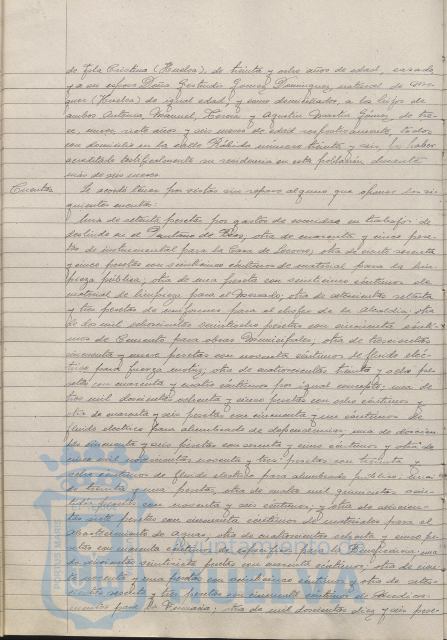 de Isla Cristina (Huelva), de treinta y ocho años de edad, casado,
y a su esposa Doña Gertrudis Gomez Dominguez, natural de Mo-
guer (Huelva) de igual edad, y como domiciliados, a los hijos de
ambos Antonia, Manuel, Fermin y Agustin Martin Gómez, de tre-
ce, nueve, siete años y seis meses de edad respectivamente, todos
con domicilio en la calle número treinta y seis, por haber
acreditado testificalmente su residencia en esta población durante
más de seis meses.
Cuentas
Se acordó tener por vistas sin reparo alguno que oponer las si-
guientes cuentas:
Una de setenta pesetas por gastos de comidas en trabajos de
deslinde en el Pantano de ; otra de cuarenta y cinco pese-
tas de instrumental para la Casa de Socorro; otra de ciento sesenta
y cinco pesetas con céntimos de material para la lim-
pieza pública; otra de una peseta con veinticinco céntimos de
material de limpieza para el Mercado; otra de setecientas setenta
y tres pesetas de uniformes para el chofer de la Alcaldía; otra
de dos mil ochocientas pesetas con cincuenta cénti-
mos de Cemento para obras Municipales; otra de trescientas
cincuenta y nueve pesetas con noventa céntimos de fluido eléc-
trico para fuerza motriz; otra de cuatrocientas treinta y ocho pe-
setas con cuarenta y cuatro céntimos por igual concepto; una de
tres mil doscientas ochenta y cinco pesetas con ocho céntimos y
otra de cuarenta y seis pesetas con cincuenta y un céntimos de
fluido eléctrico para alumbrado de dependencias; una de doscien-
tas cincuenta y seis pesetas con sesenta y cinco céntimos y otra de
cinco mil novecientas noventa y tres pesetas con treinta y
ocho céntimos de fluido eléctrico para alumbrado público; una
treinta y una pesetas, otra de cuatro mil quinientas
pesetas con noventa y seis céntimos, y otra de
siete pesetas con cincuenta céntimos de materiales para el
abastecimiento de Aguas; otra de cuatrocientas ochenta y cinco pe-
setas con cuarenta céntimos de para la Beneficencia; una
de doscientas veintisiete pesetas con cuarenta céntimos, otra de
y una pesetas con veinticinco céntimos y otra de
sesenta y tres pesetas con cincuenta céntimos de medica-
mentos para la ; otra de mil doscientas diez y seis pese-